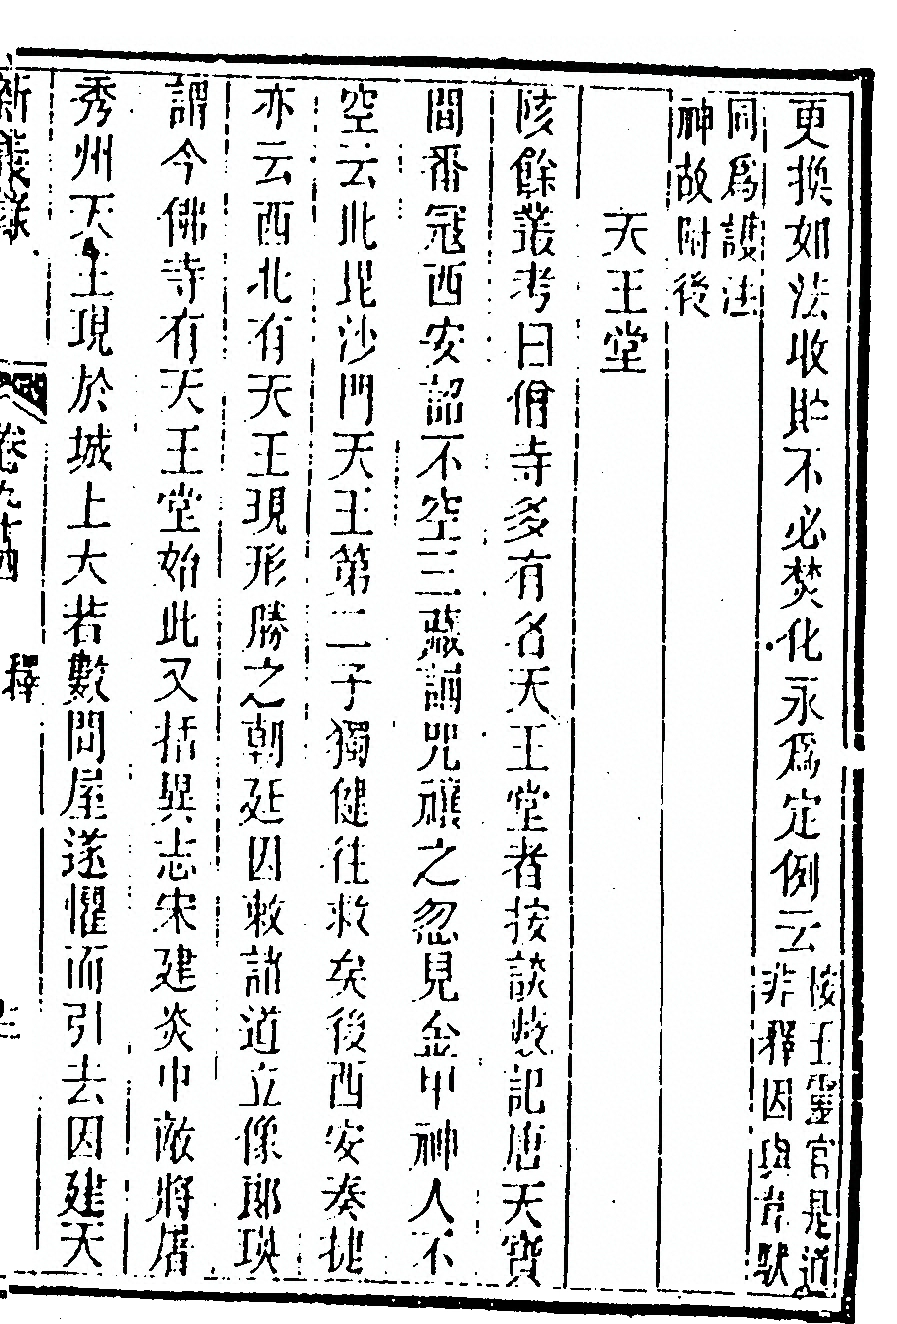 更換如法收貯不必焚化永爲定例云按王靈官是道
非釋因與韋馱
同爲護法
神故附後
天王堂
陔餘叢考曰僧寺多有名天王堂者按談藪記唐天寶
間番寇西安詔不空三藏誦咒禳之忽見金甲神人不
空云此毘沙門天王第二子獨健往救矣後西安奏捷
亦云西北有天王現形勝之朝廷因敕諸道立像郎瑛
謂今佛寺有天王堂始此又括異志宋建炎中敵將屠
秀州天王現於城上大若數間屋遂懼而引去因建天
新義錄
卷九十四
釋